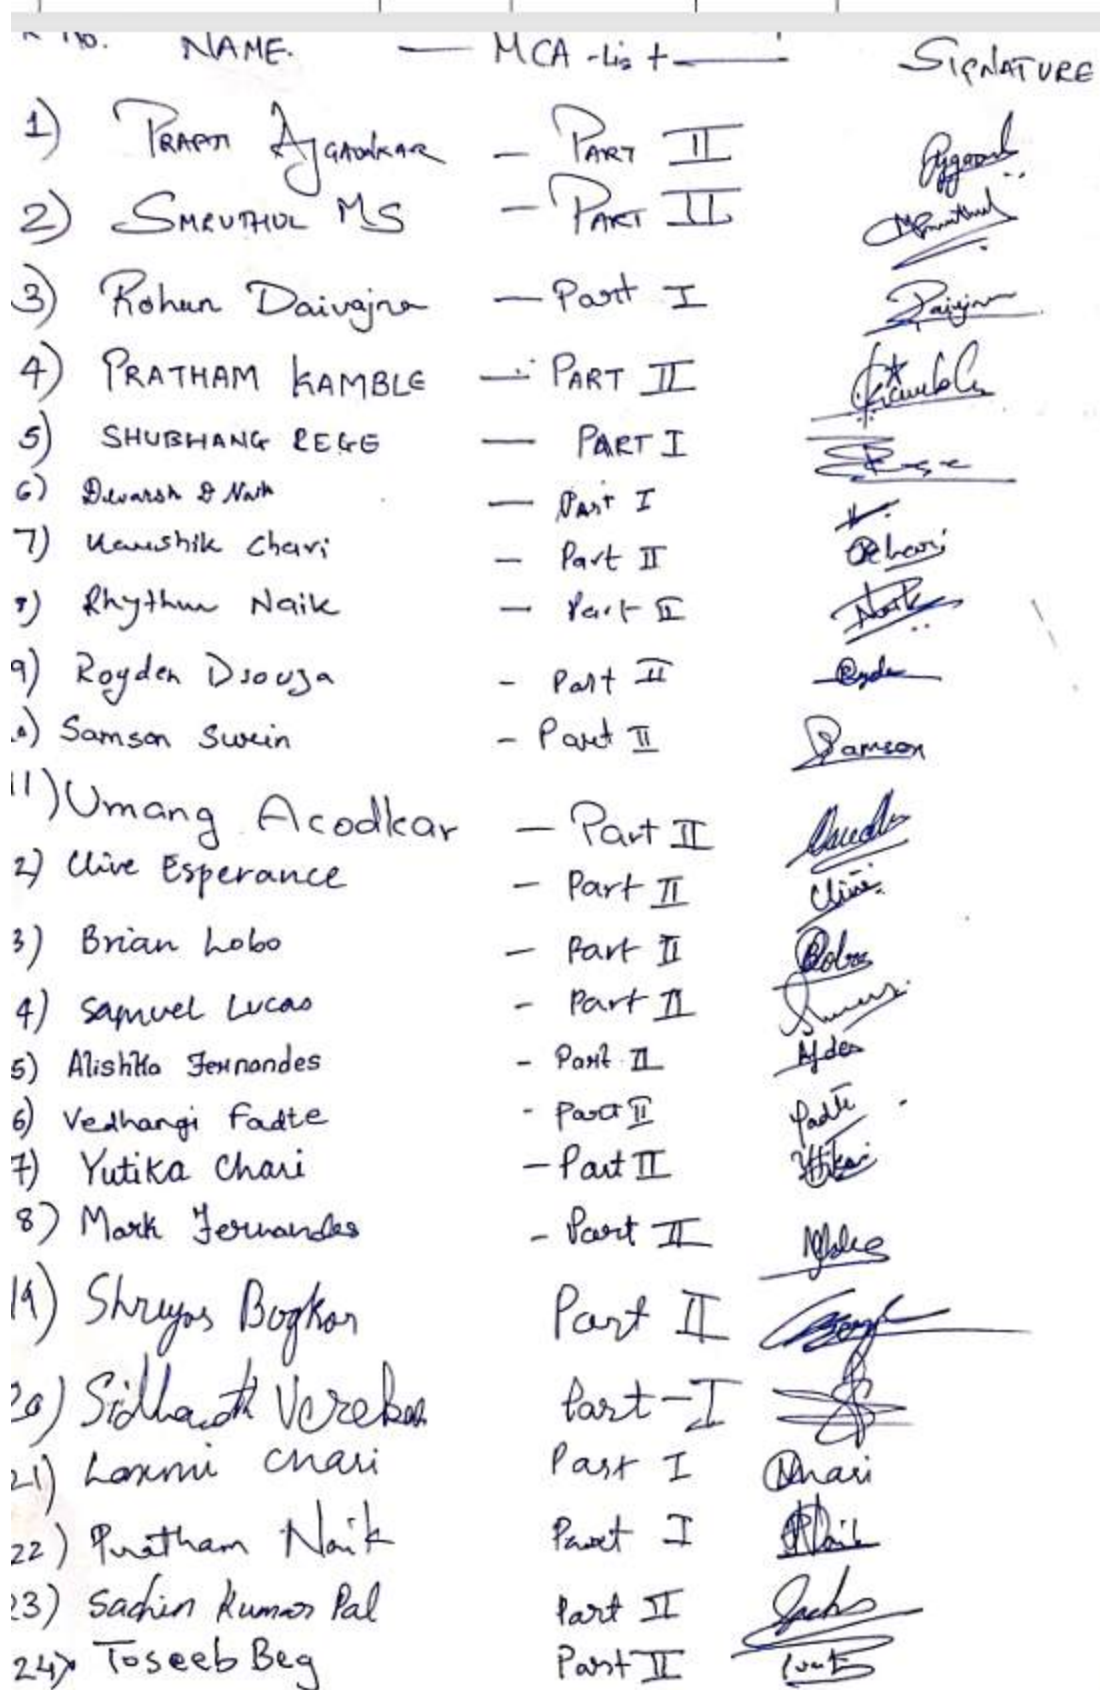 No. NAME. — MCA -List — SIGNATURE
1) PRAPTI AJGAONKAR — PART II
2) SMRUTHUL MS — PART II
3) Rohun Daivajna — Part I
4) PRATHAM KAMBLE — PART II
5) SHUBHANG REGE — PART I
6) Devarsh D Naik — Part I
7) Kaushik Chari — Part II Chari
8) Rhythm Naik — Part II Naik
9) Royden Dsouza - Part II
) Samson Swein - Part II Samson
11) Umang Acodkar — Part II
2) Clive Esperance — Part II Clive
3) Brian Lobo — Part II Lobo
4) Samuel Lucas - Part II
5) Alishka Fernandes - Part II
6) Vedhangi Fadte - Part II Fadte
7) Yutika Chari — Part II
8) Mark Fernandes - Part II
19) Shreyas Bogkar Part II
20) Sidhanth Verekar Part-I
21) Laxmi Chari Part I Chari
22) Pratham Naik Part I Naik
23) Sachin Kumar Pal Part II
24) Toseeb Beg Part II